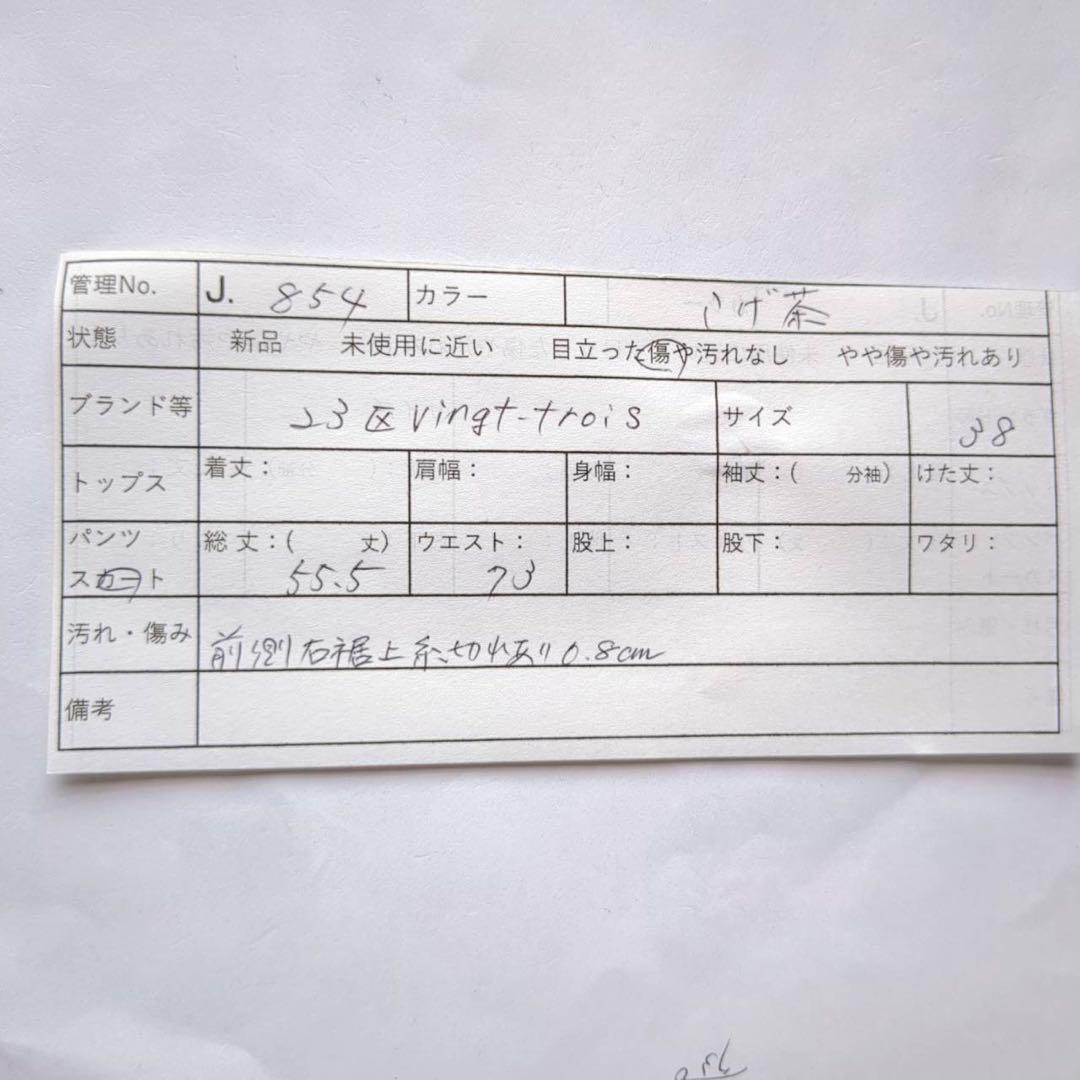 管理No. J. 854 カラー こげ茶
状態 新品 未使用に近い 目立った傷や汚れなし やや傷や汚れあり
ブランド等 23区 vingt-trois サイズ 38
トップス 着丈： 肩幅： 身幅： 袖丈：( 分袖) けた丈：
パンツ 総丈：( 丈) ウエスト： 股上： 股下： ワタリ：
スカート 55.5 73
汚れ・傷み 前側右裾上糸切れあり0.8cm
備考